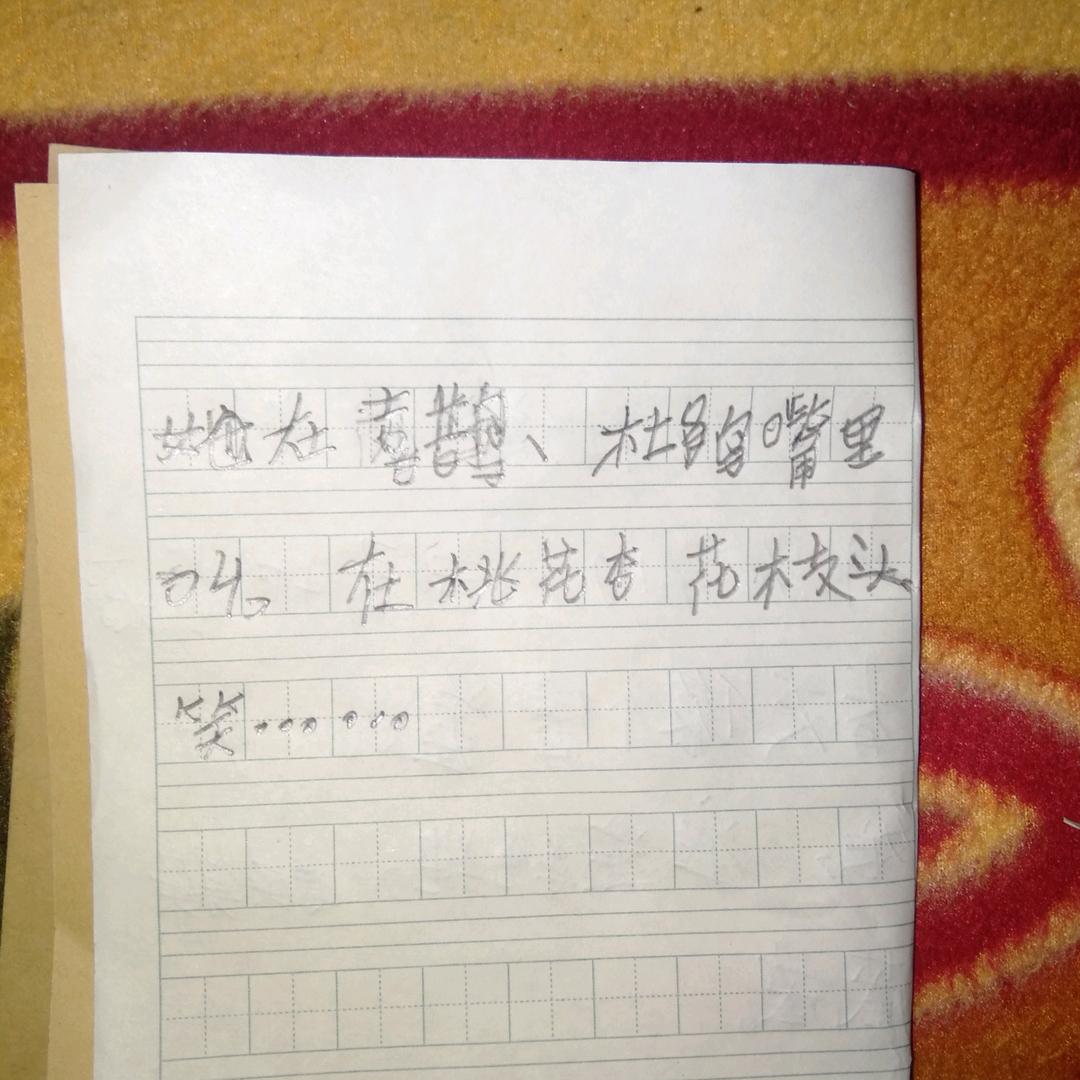 她在喜鹊、杜鹃嘴里
叫。在桃花杏花枝头
笑……